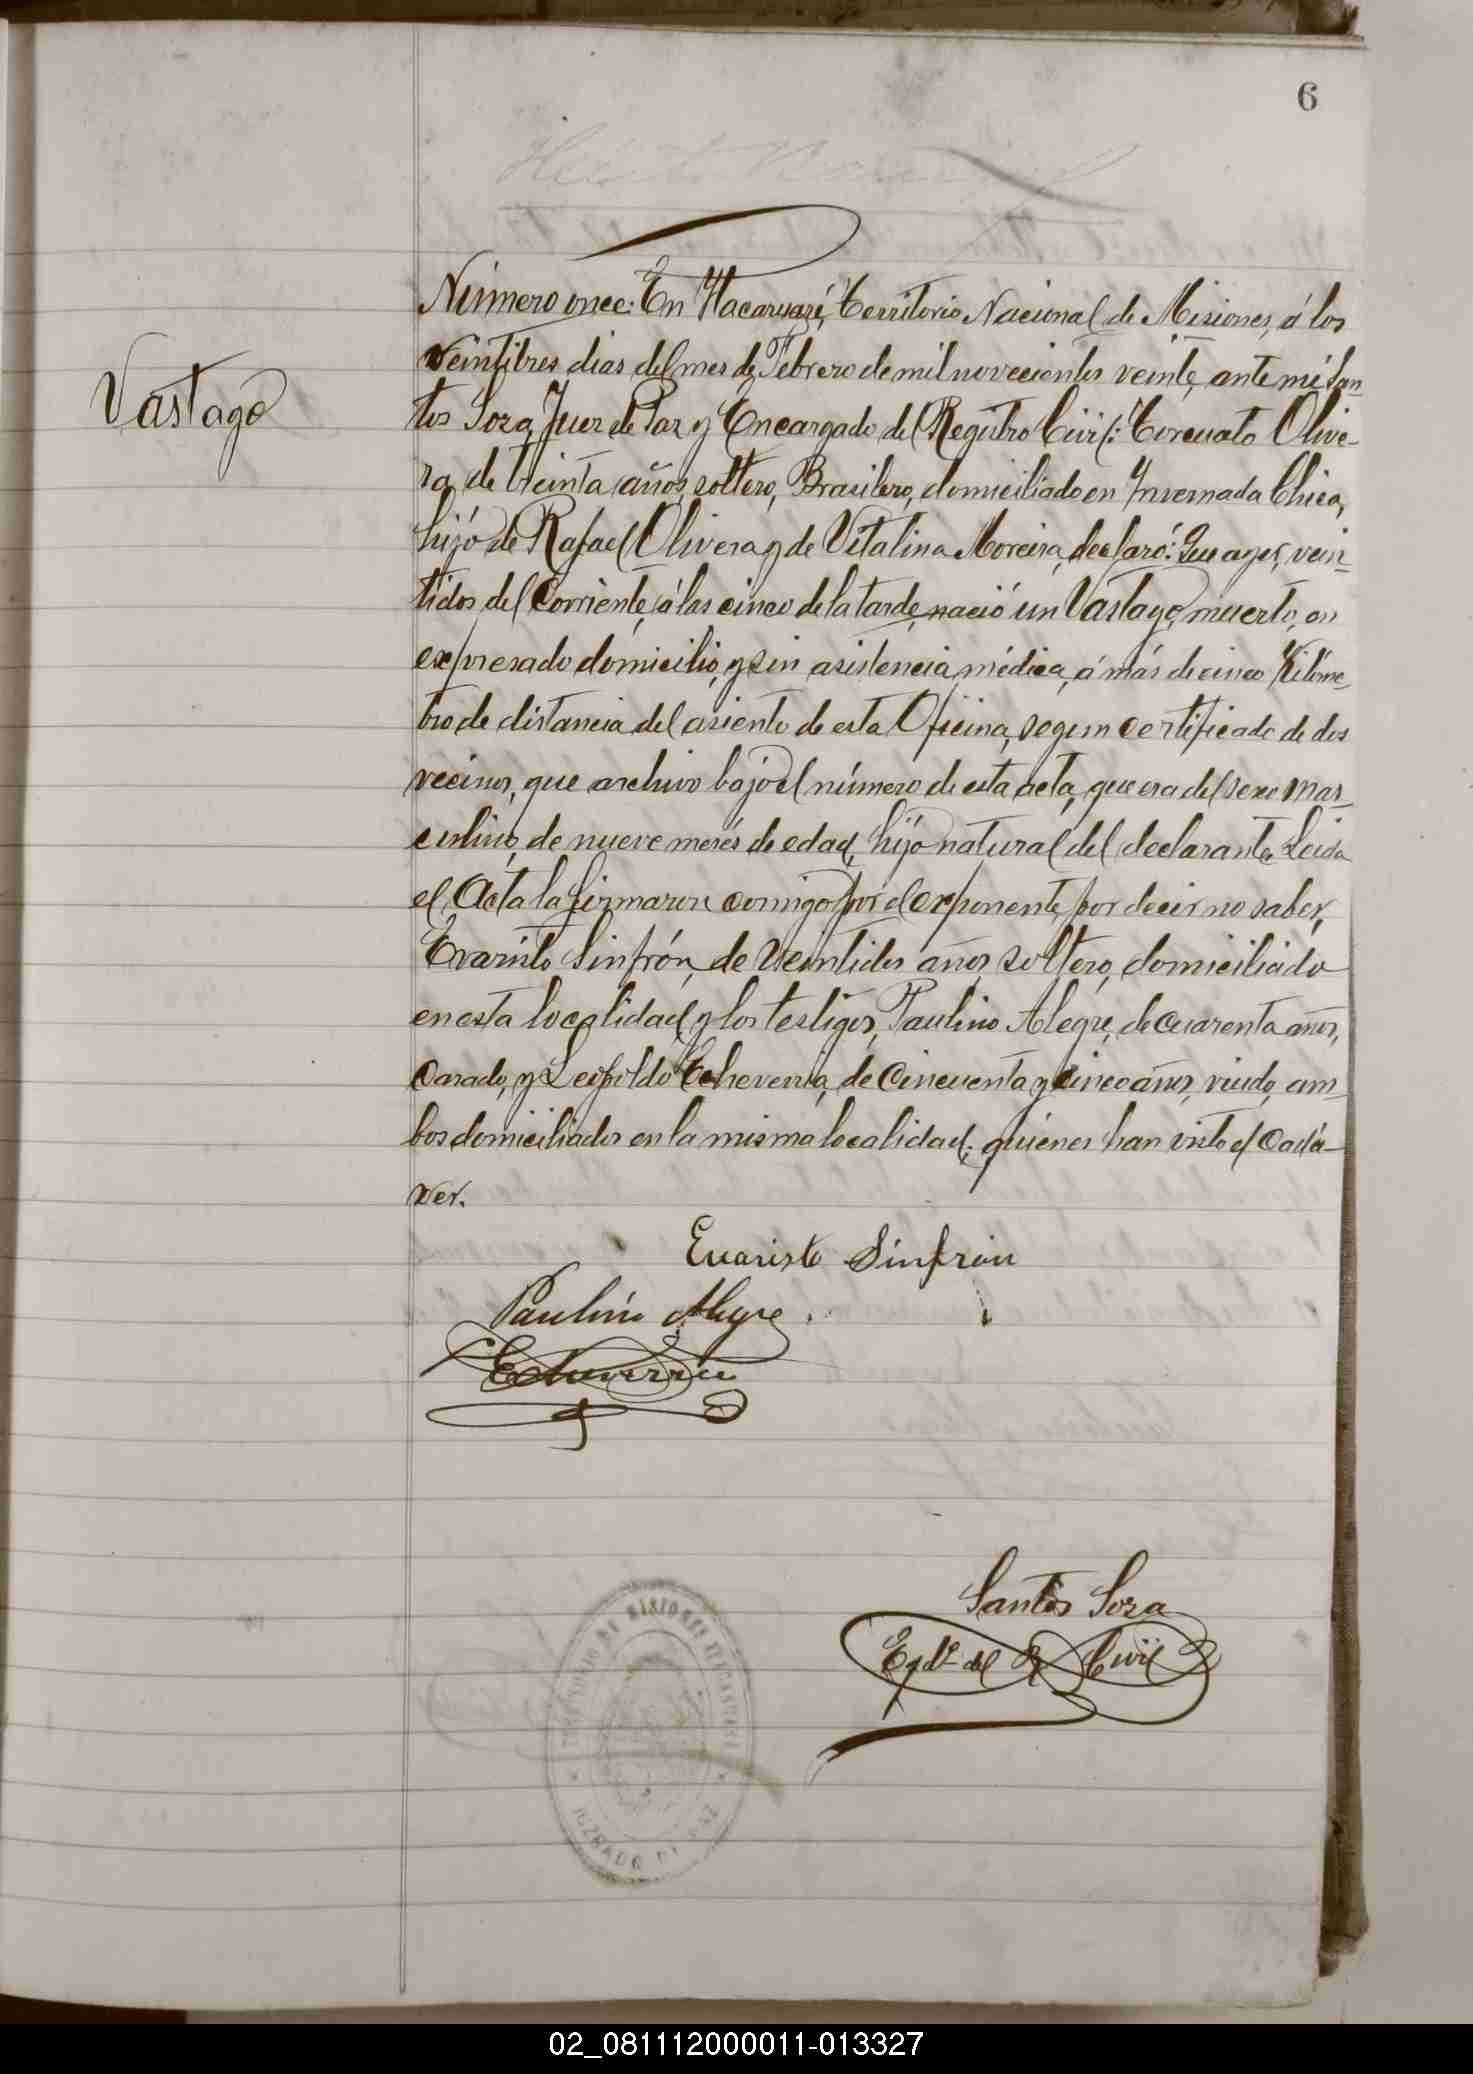 6
Vastago
Número once: En Itacaruaré, Territorio Nacional de Misiones, á los
veintitres dias del mes de Febrero de mil novecientos veinte, ante mi San-
tos Soza, Juez de Paz y Encargado del Registro Civil: Torcuato Olive-
ra, de treinta años, soltero, Brasilero, domiciliado en Invernada Chica,
hijo de Rafael Olivera y de Vitalina Moreira, declaró: Que ayer, vein-
tidos del corriente, á las cinco de la tarde, nació un Vastago, muerto, en
expresado domicilio, y sin asistencia médica, á más de cinco Kilóme-
tro de distancia del asiento de esta Oficina, segun certificado de dos
vecinos, que archivo bajo el número de esta acta, que era del sexo mas-
culino, de nueve meses de edad, hijo natural del declarante. Leida
el Acta la firmaron comigo, por el exponente, por decir no saber,
Evaristo Sinfrón, de veintidos años, soltero, domiciliado
en esta localidad, y los testigos, Paulino Alegre, de cuarenta años,
casado, y Leopoldo Echeverria, de cincuenta y cinco años, viudo, am-
bos domiciliados en la misma localidad; quienes han visto el cadá-
ver.
Evaristo Sinfrón
Paulino Alegre
L Echeverria
Santos Soza
Egdo. del R. Civil
TERRITORIO DE MISIONES
JUZGADO DE PAZ
02_081112000011-013327